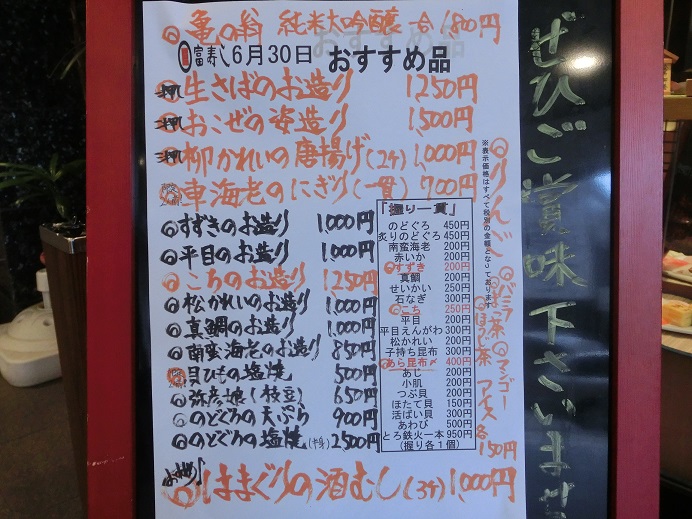 亀の翁 純米大吟醸 一合 1,800円
富寿し 6月30日 おすすめ品
生さばのお造り 1250円
おこぜの姿造り 1,500円
柳かれいの唐揚げ(2ケ) 1,000円
車海老のにぎり(一貫) 700円
すずきのお造り 1,000円
平目のお造り 1,000円
こちのお造り 1250円
松かれいのお造り 1,000円
真鯛のお造り 1,000円
南蛮海老のお造り 850円
目ひもの塩焼 500円
弥彦娘(枝豆) 650円
のどぐろの天ぷら 900円
のどぐろの塩焼(半身) 2500円
はまぐりの酒むし(3ケ) 1,000円
「握り一貫」
のどぐろ 450円
炙りのどぐろ 450円
南蛮海老 200円
赤いか 200円
すずき 200円
真鯛 200円
せいかい 250円
石なぎ 300円
こち 250円
平目 200円
平目えんがわ 300円
松かれい 200円
子持ち昆布 300円
あら昆布〆 400円
あじ 200円
小肌 200円
つぶ貝 200円
ほたて貝 150円
活ばい貝 300円
あわび 500円
とろ鉄火一本 950円
(握り各1個)
※表示価格はすべて税別の金額となっております
りんご
バニラ
マンゴー
抹茶
ほうじ茶
アイス 各150円
ぜひご賞味下さいませ